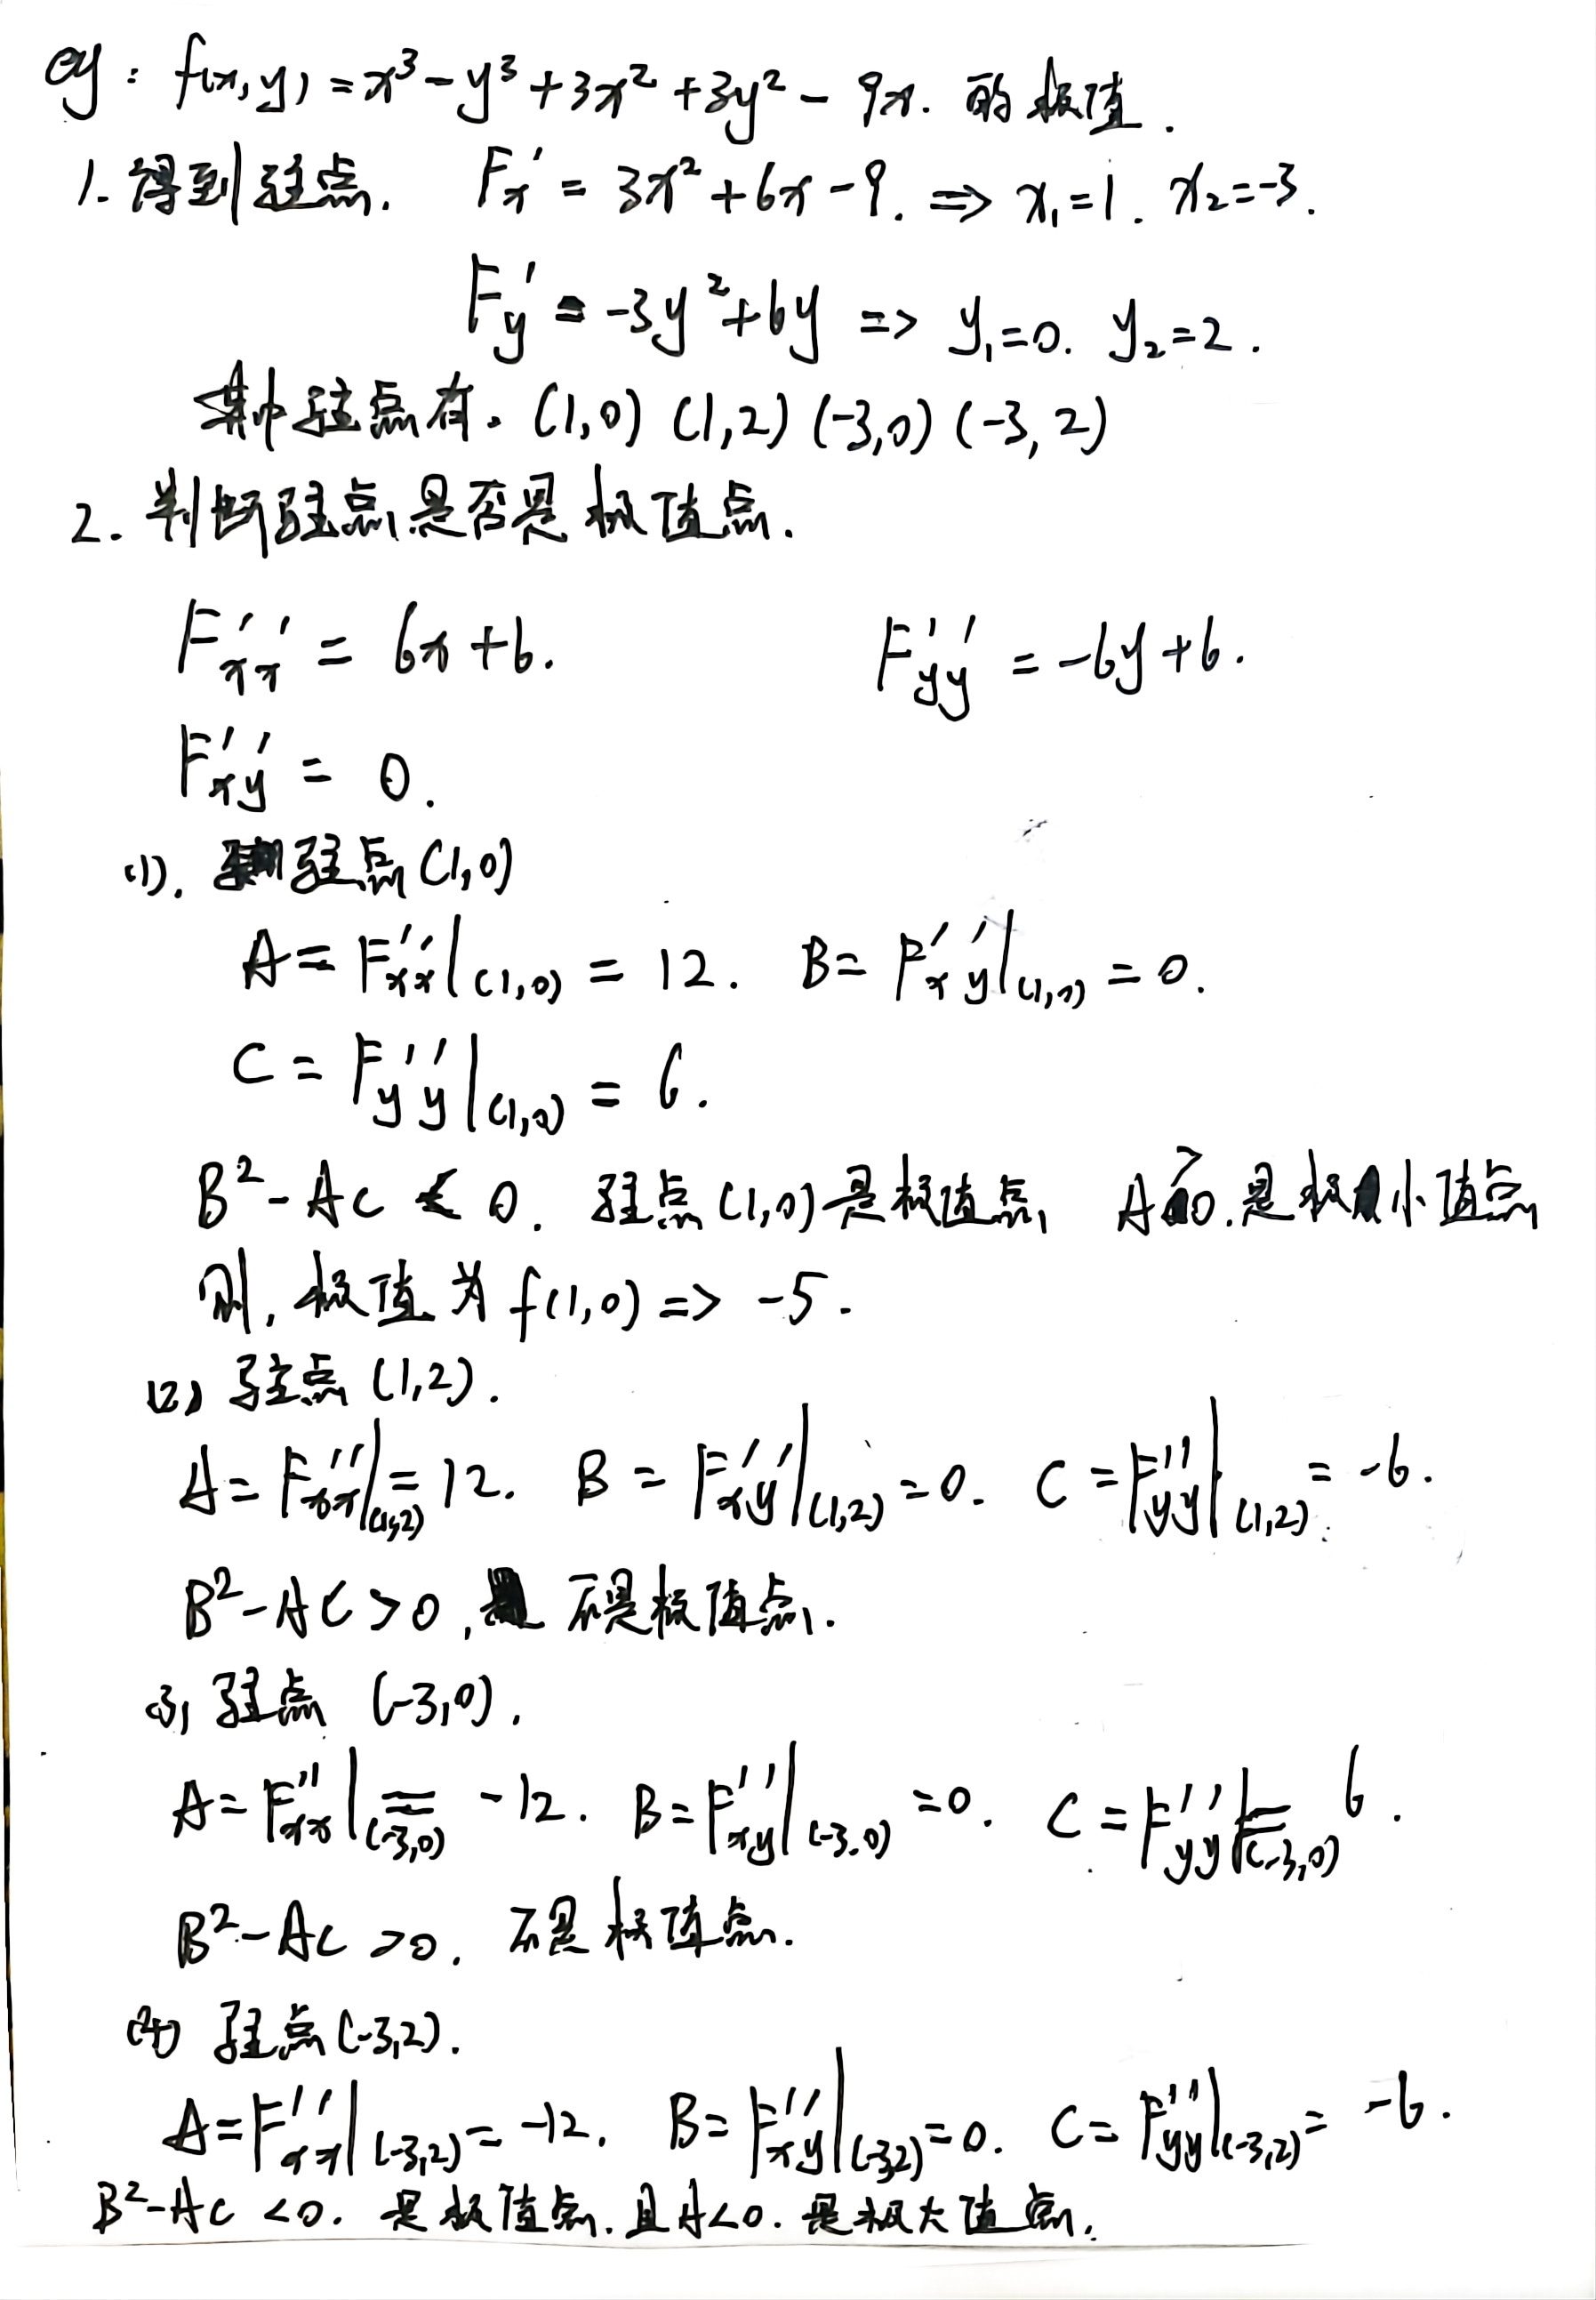 eg: f(x,y)=x³-y³+3x²+3y²-9x. 的极值.
1. 得到驻点. Fx′=3x²+6x-9. ⇒ x₁=1. x₂=-3.
Fy′=-3y²+6y => y₁=0. y₂=2.
其中驻点有. (1,0) (1,2) (-3,0) (-3,2)
2. 判断驻点是否是极值点.
F′′xx = 6x+6. F′′yy = -6y+6.
F′′xy = 0.
(1). 驻点(1,0)
A= F′′xx|(1,0) = 12. B= F′′xy|(1,0) = 0.
C= F′′yy|(1,0) = 6.
B²-AC < 0. 驻点(1,0)是极值点 A>0.是极小值点
则,极值为f(1,0) => -5.
(2) 驻点(1,2).
A= F′′xx|(1,2) = 12. B= F′′xy|(1,2) = 0. C= F′′yy|(1,2) = -6.
B²-AC>0, 不是极值点.
(3) 驻点 (-3,0).
A= F′′xx|(-3,0) = -12. B= F′′xy|(-3,0) =0. C= F′′yy|(-3,0) = 6.
B²-AC >0. 不是极值点.
(4) 驻点(-3,2).
A= F′′xx|(-3,2) = -12. B= F′′xy|(-3,2) =0. C= F′′yy|(-3,2) = -6.
B²-AC <0. 是极值点.且A<0.是极大值点.